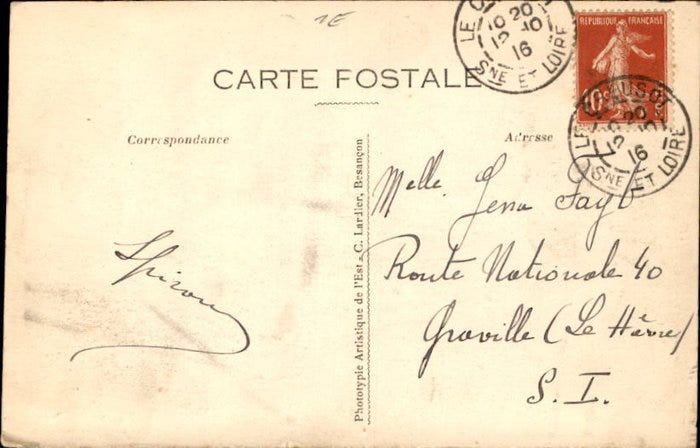 1E
LE CREUSOT
10 20
12 -10
16
SNE ET LOIRE
REPUBLIQUE FRANÇAISE
10c
LE CREUSOT
10 20
12 -10
16
SNE ET LOIRE
CARTE POSTALE
Correspondance
Adresse
Melle Jena Fayt
Route Nationale 40
Graville (Le Hâvre)
S. I.
Spirou
Phototypie Artistique de l'Est - C. Lardier, Besançon